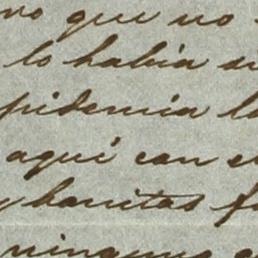 no que no
lo habia
pidemia
aqui con
bonitas
ninguno